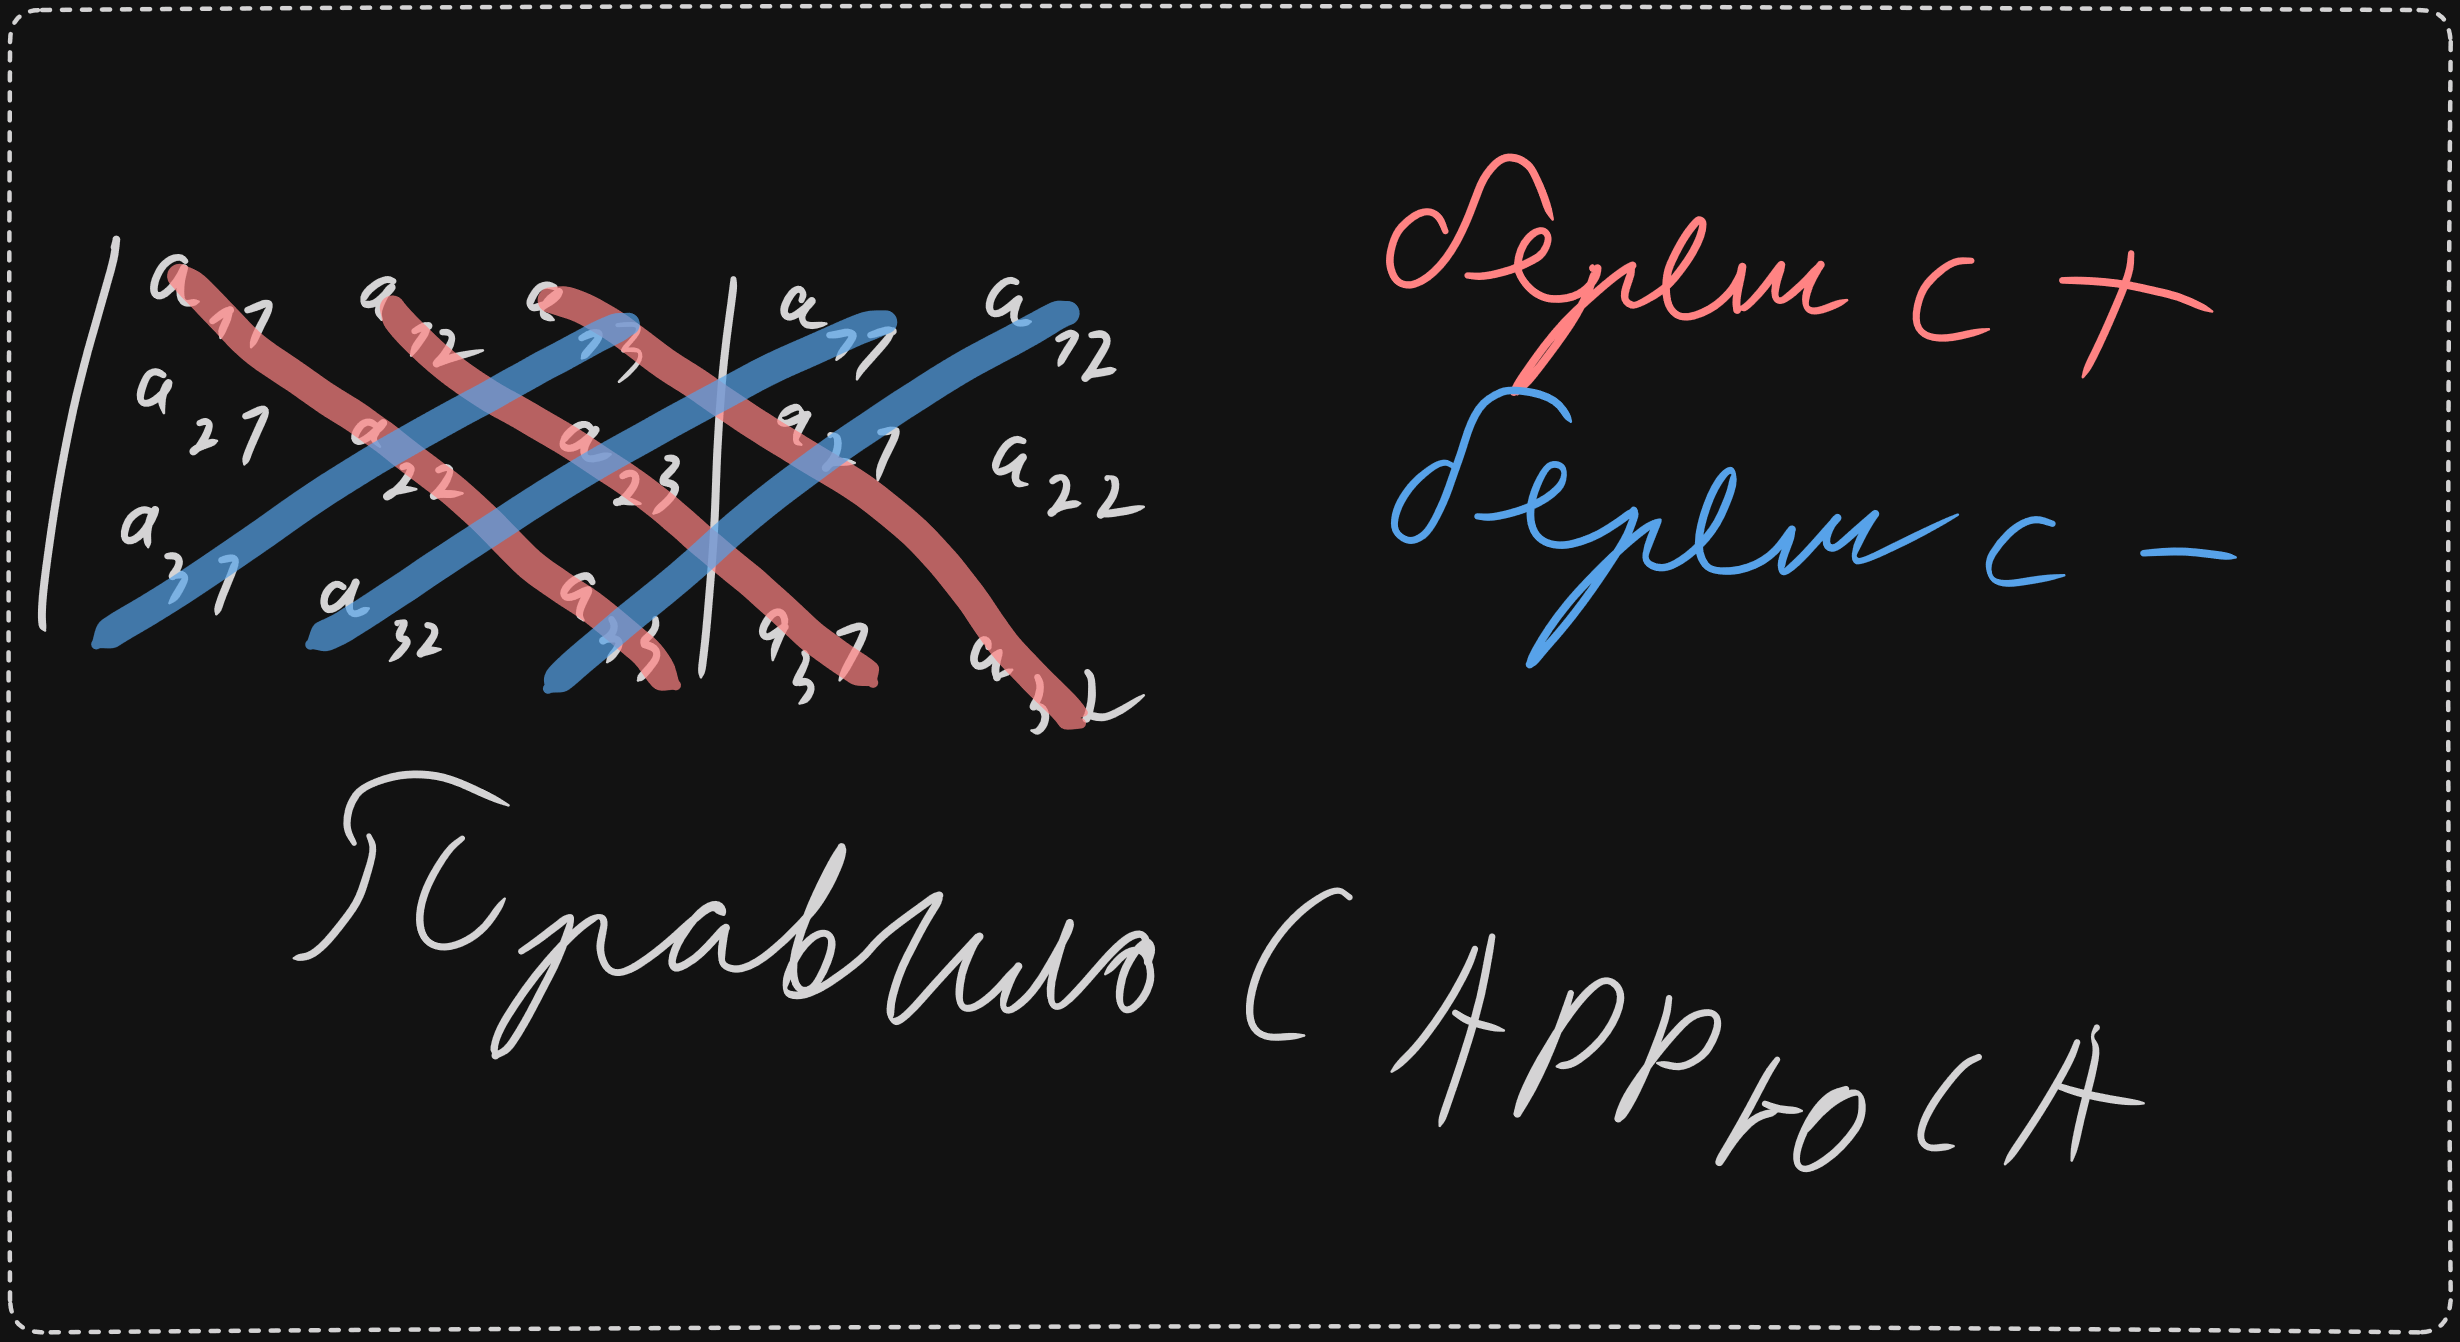 a11 a12 a13 a11 a12
a21 a22 a23 a21 a22
a31 a32 a33 a31 a32
берём с +
берём с -
Правило САРРЮСА